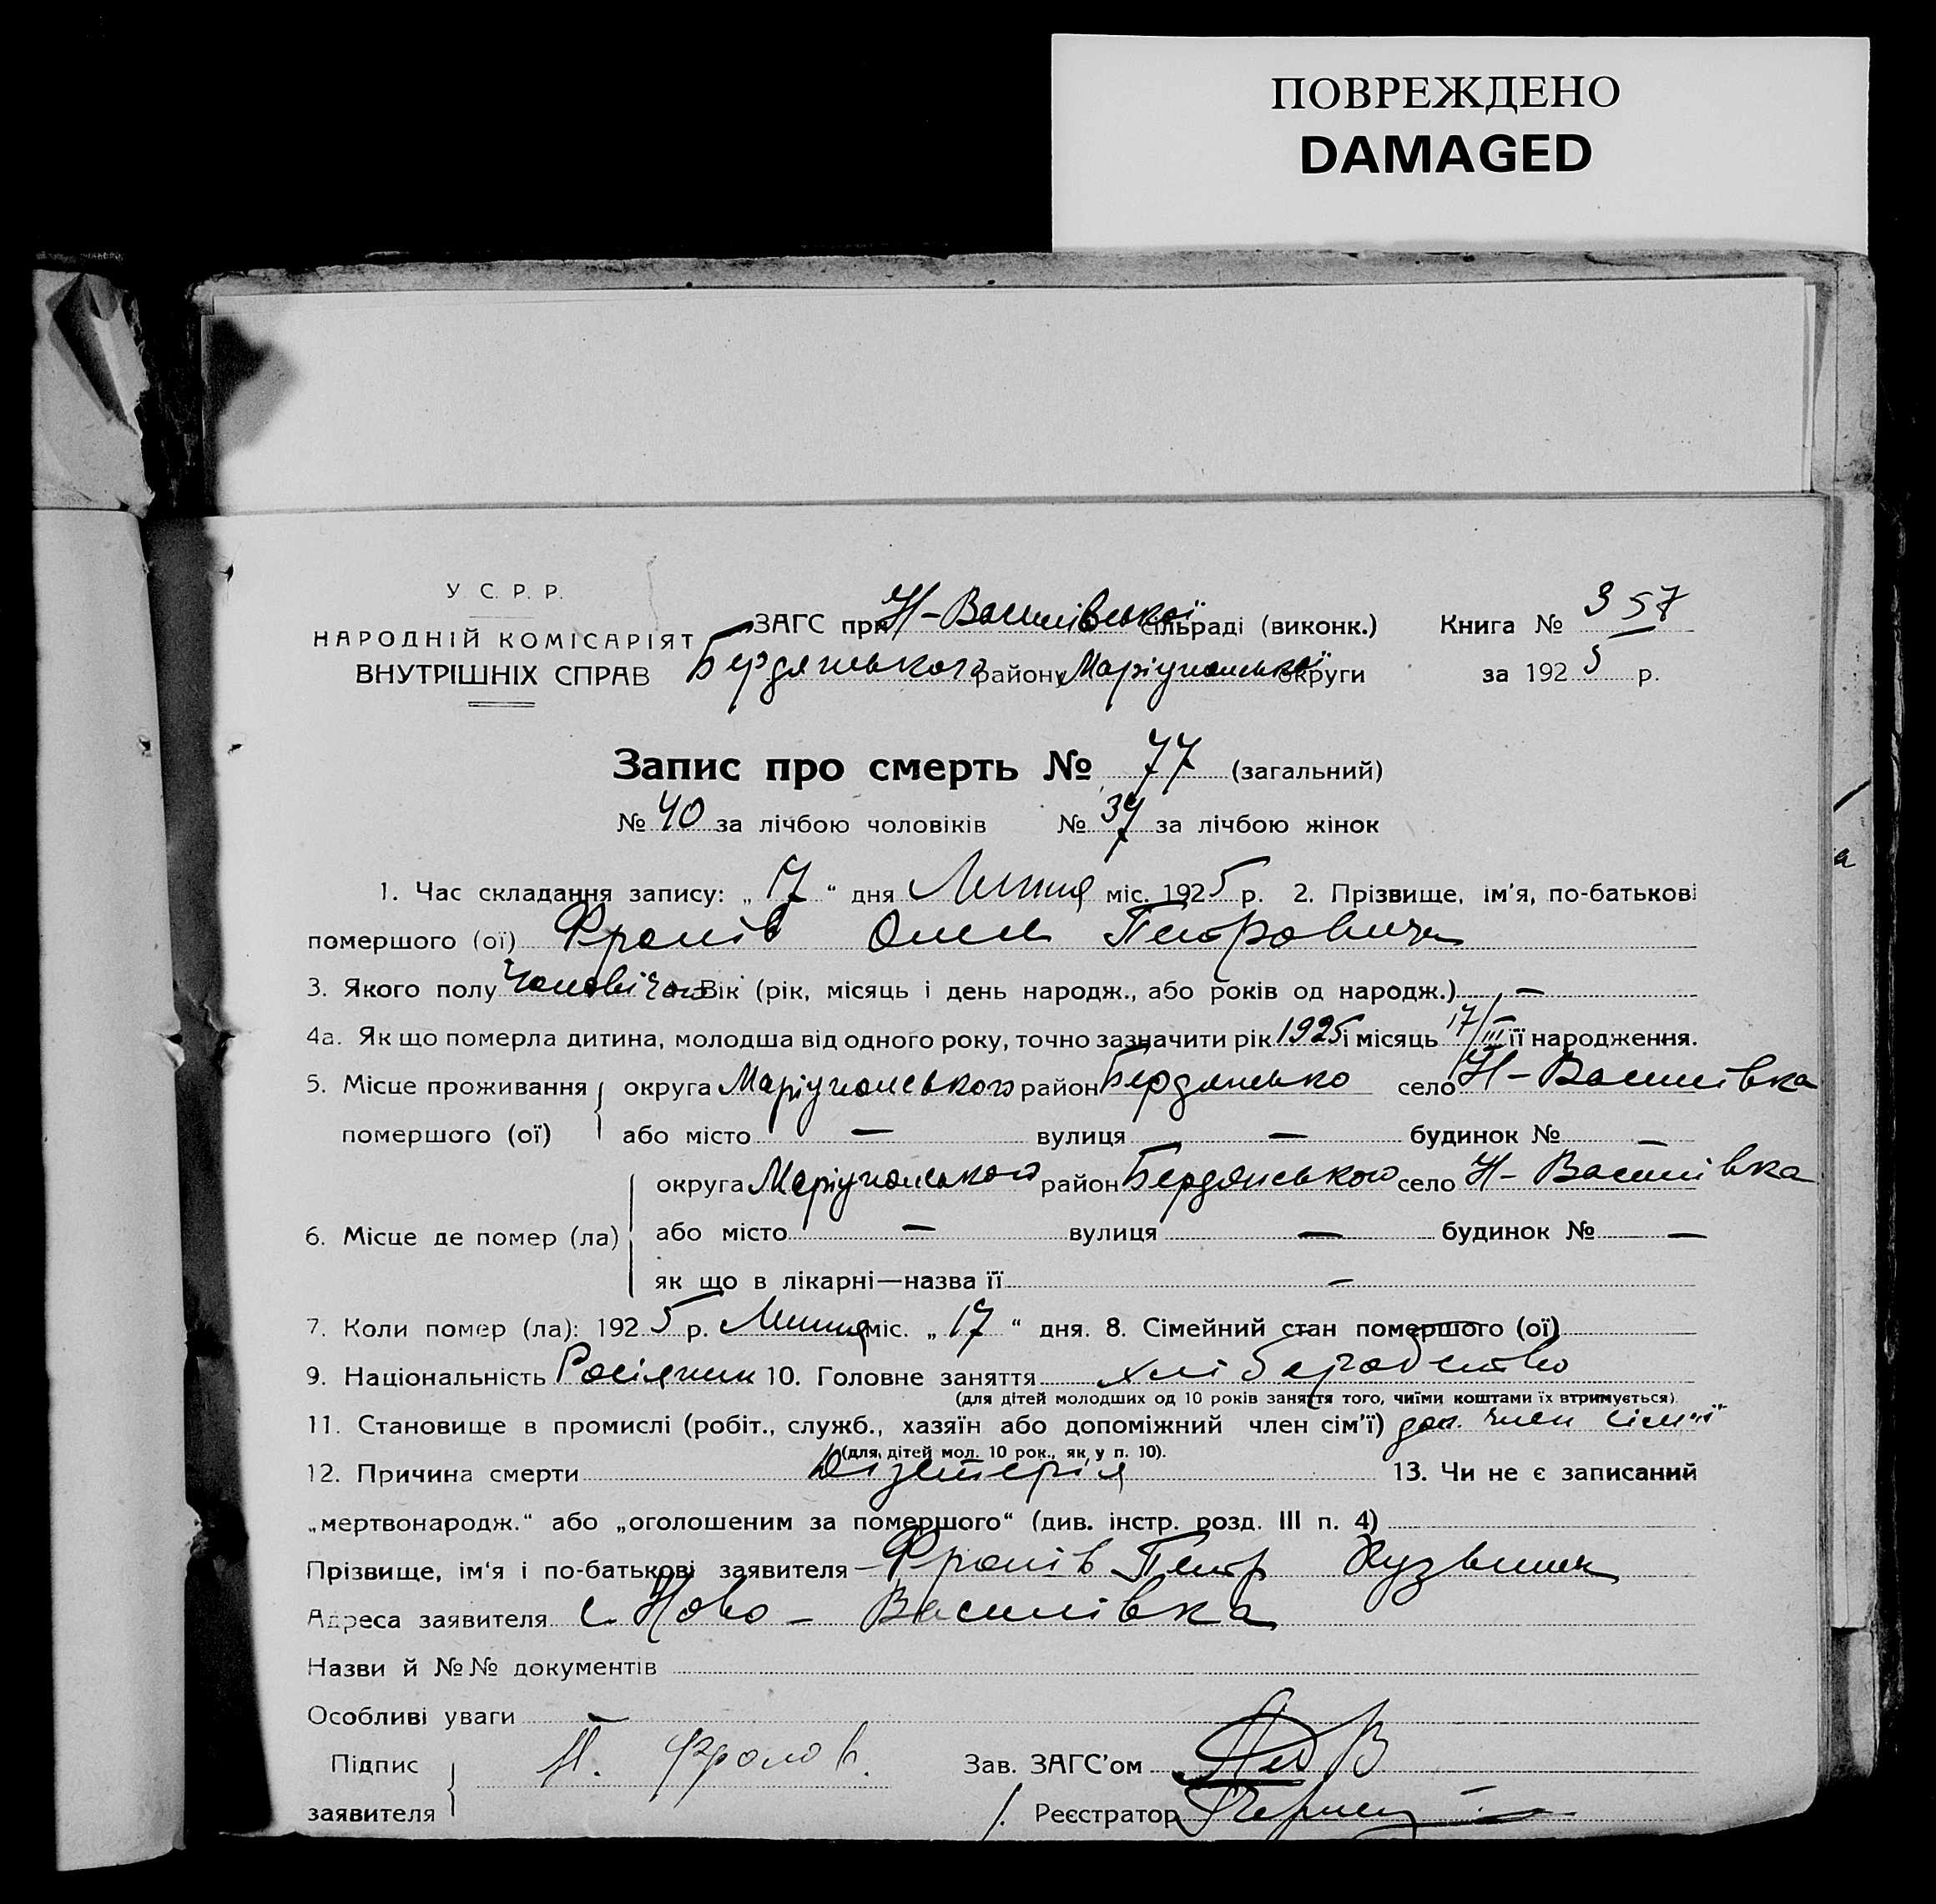 ПОВРЕЖДЕНО
DAMAGED
У. С. Р. Р.
НАРОДНІЙ КОМІСАРІЯТ
ВНУТРІШНІХ СПРАВ
ЗАГС при Н-Василівської сільраді (виконк.) Книга № 357
Бердянського району Маріупольської округи за 1925 р.
Запис про смерть № 77 (загальний)
№ 40 за лічбою чоловіків № 37 за лічбою жінок
1. Час складання запису: „17“ дня Липня міс. 1925 р. 2. Прізвище, ім'я, по-батькові
помершого (ої) Фролів Петрович
3. Якого полу чоловічого Вік (рік, місяць і день народж., або років од народж.) —
4а. Як що померла дитина, молодша від одного року, точно зазначити рік 1925 і місяць 17/III її народження.
5. Місце проживання округа Маріупольського район Бердянсько село Н-Василівка
помершого (ої) або місто — вулиця — будинок № —
округа Маріупольського район Бердянського село Н-Василівка
6. Місце де помер (ла) або місто — вулиця — будинок № —
як що в лікарні—назва її —
7. Коли помер (ла): 1925 р. Липня міс. „17“ дня. 8. Сімейний стан помершого (ої)
9. Національність Росіянин 10. Головне заняття хліборобство
(для дітей молодших од 10 років заняття того, чиїми коштами їх втримується)
11. Становище в промислі (робіт., служб., хазяїн або допоміжний член сім'ї) доп. член сім'ї
(для дітей мол. 10 рок., як у п. 10).
12. Причина смерти Дізентерія 13. Чи не є записаний
„мертвонародж.“ або „оголошеним за помершого“ (див. інстр. розд. III п. 4)
Прізвище, ім'я і по-батькові заявителя Фролів Петр Кузьмич
Адреса заявителя с. Ново-Василівка
Назви й №№ документів
Особливі уваги
Підпис
заявителя П. Фролов.
Зав. ЗАГС'ом
Реєстратор